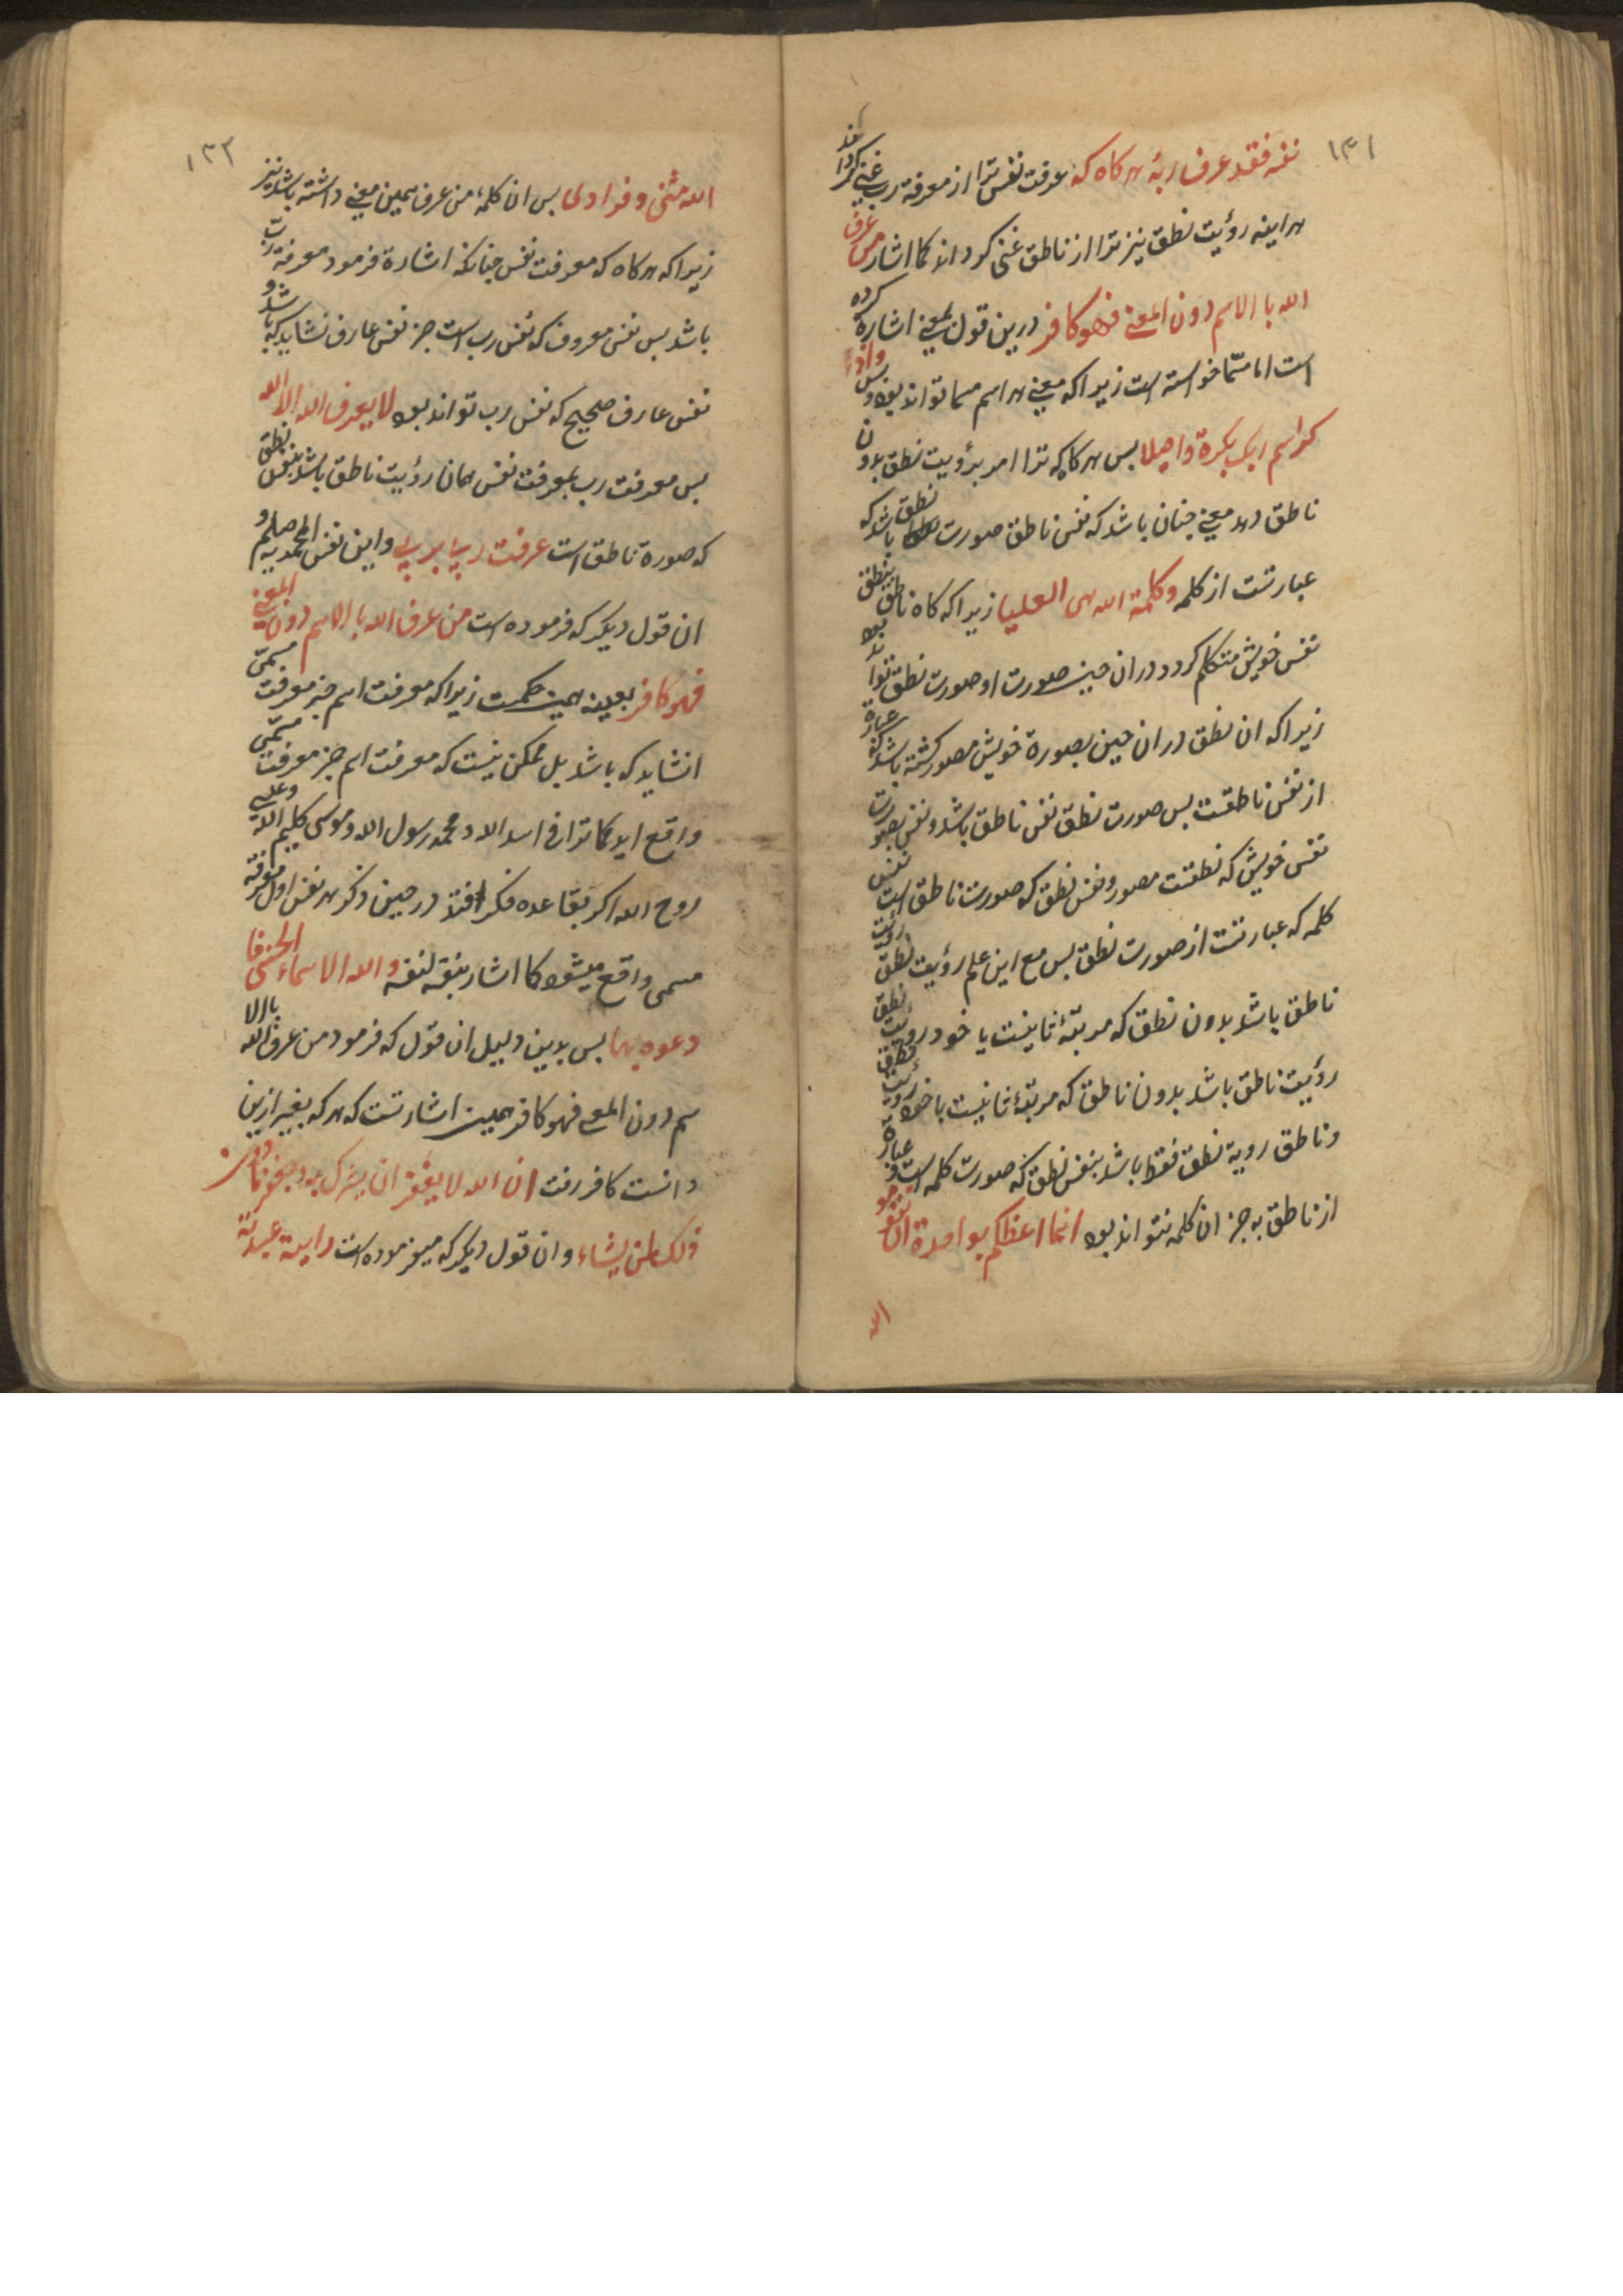 ١٣١
نفسه فقد عرف ربه هر کاه که عرفت نفس ترا از معرفة رب غنی کرداند
هراینه رؤیت نطق نیز ترا از ناطق غنی کرداند کما اشار من عرف
الله با الاسم دون المعنی فهو کافر درین قول بمعنی اشارة کرده
است اما مسمّا خواسته است زیراکه معنی هر اسم مسما تواند بود وبس واذ
کر اسم ربک بکرة واصیلا بس هر کاه که ترا امر برؤیت نطق بدون
ناطق دهد معنی جنان باشد که نفس ناطق صورت نطق باشد که
عبارتست از کلمه وکلمة الله هی العلیا زیراکه کاه ناطق بنطق
نفس خویش متکلم کردد دران حین صورت او صورت نطق تواند بود
زیراکه ان نطق دران حین بصورة خویش مصور کشته باشد که عبارة
از نفس ناطقست بس صورت نطق نفس ناطق باشد ونفس بصورت
نفس خویش که نطقست مصور ونفس نطق که صورت ناطق است نفس
کلمه که عبارتست از صورت نطق بس مع این علم رؤیت نطق رؤیت
ناطق باشد بدون نطق که مرتبهٔ ثانیست یا خود رؤیت نطق
رؤیت ناطق باشد بدون ناطق که مرتبهٔ ثانیست یا خود رؤیت نطق
وناطق رویة نطق فقط باشد بنفس نطق که صورت کلمه است و عبارة
از ناطق به جز ان کلمه نتواند بود انما اعظکم بواحدة ان تقوموا
الله
١٣٢
الله مثنی وفرادی بس ان کلمهٔ من عرف همین معنی داشته باشد نیز
زیراکه هر کاه که معرفت نفس جنانکه اشارة فرمود معرفة رب
باشد بس نفس معروف که نفس رب است جز نفس عارف نشاید که باشد و
نفس عارف صحیح که نفس رب تواند بود لا یعرف الله الا الله
بس معرفت رب بمعرفت نفس همان رؤیت ناطق باشد بنفس نطق
که صورة ناطق است عرفت ربی بربی واین نفس المحمدیه صلعم و
ان قول دیکر که فرموده است من عرف الله با الاسم دون المعنی
فهو کافر بعینه همین حکمت زیراکه معرفت اسم جز معرفت مسمّی
انشاید که باشد بل ممکن نیست که معرفت اسم جز معرفت مسمّی
واقع اید کما تراف اسد الله ومحمد رسول الله وموسی کلیم الله وعلیسی
روح الله اکر بقاعده فکر افتد در حین ذکر هر نفس اول معرفة
مسمی واقع میشود کما اشار بنفسه لنفسه ولله الاسماء الحسنی فا
دعوه بها بس بدین دلیل ان قول که فرمود من عرف الله با الا
سم دون المعنی فهو کافر همین اشارتست که هر که بغیر ازین
دانست کافر رفت ان الله لا یغفر ان یشرک به ویغفر ما دون
ذلک لمن یشاء وان قول دیکر که میفرموده است رایة عبدته